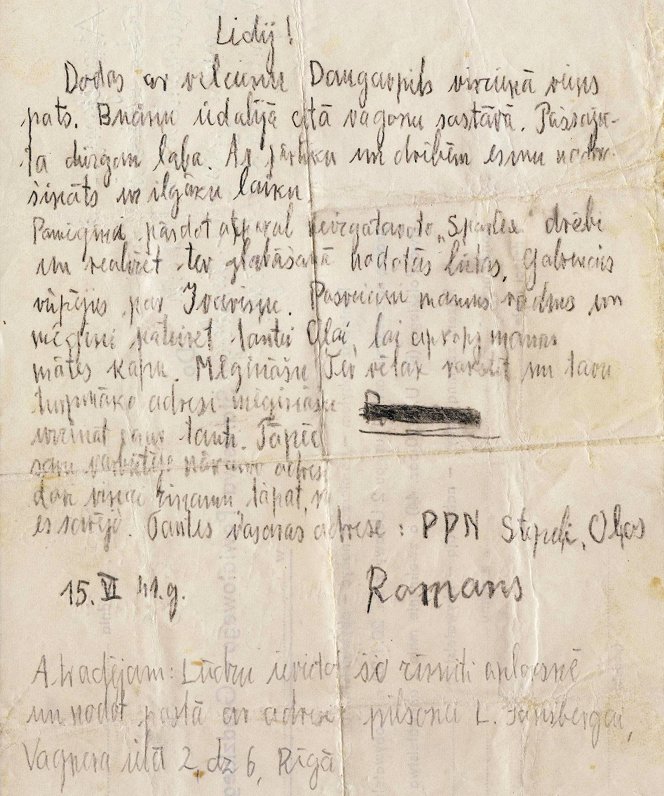 Lidij!
Dodos ar vilcienu Daugavpils virzienā viens
pats. Bruāni iedalījā citā vagonu sastāvā. Passajū-
ta diezgan laba. Ar pārtiku un drēbēm esmu nodro-
šināts uz ilgāku laiku
Pamēģini pārdot atpakaļ neizgatavoto „Spartes" drēbi
un realizēt tev glabāšanā nodotās lietas. Galvenais
rūpējies par Ivariņu. Pasveicini manus radus un
mēģini sameklēt tanti Olgu, lai apkopj manas
mātes kapu. Mēģināšu Tev vēlāk rakstīt un tavu
turpmāko adresi mēģināšu
uzzināt caur tanti. Tāpēc
savu varbūtējo nākamo adresi
dari viņai zināmu tāpat, kā
es savējo. Tantes vasaras adrese: PPN Stepeļi, Oļos
15. VI 41.g. Romans
Atradējam: Lūdzu ievietot šo zīmīti aploksnē
un nodot pastā ar adresi pilsonei L. Jansbergai,
Vagnera ielā 2 dz 6, Rīgā